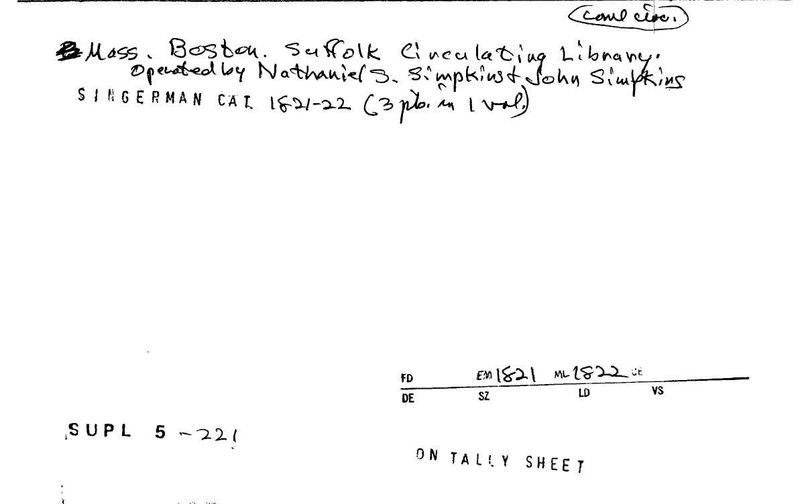 coml circ.
Mass. Boston. Suffolk Circulating Library.
Operated by Nathaniel S. Simpkins & John Simpkins
SINGERMAN CAT. 1821-22 (3 pb. in 1 vol.)
FD EM 1821 ML 1822 CE
DE SZ LD VS
SUPL 5 -221
ON TALLY SHEET